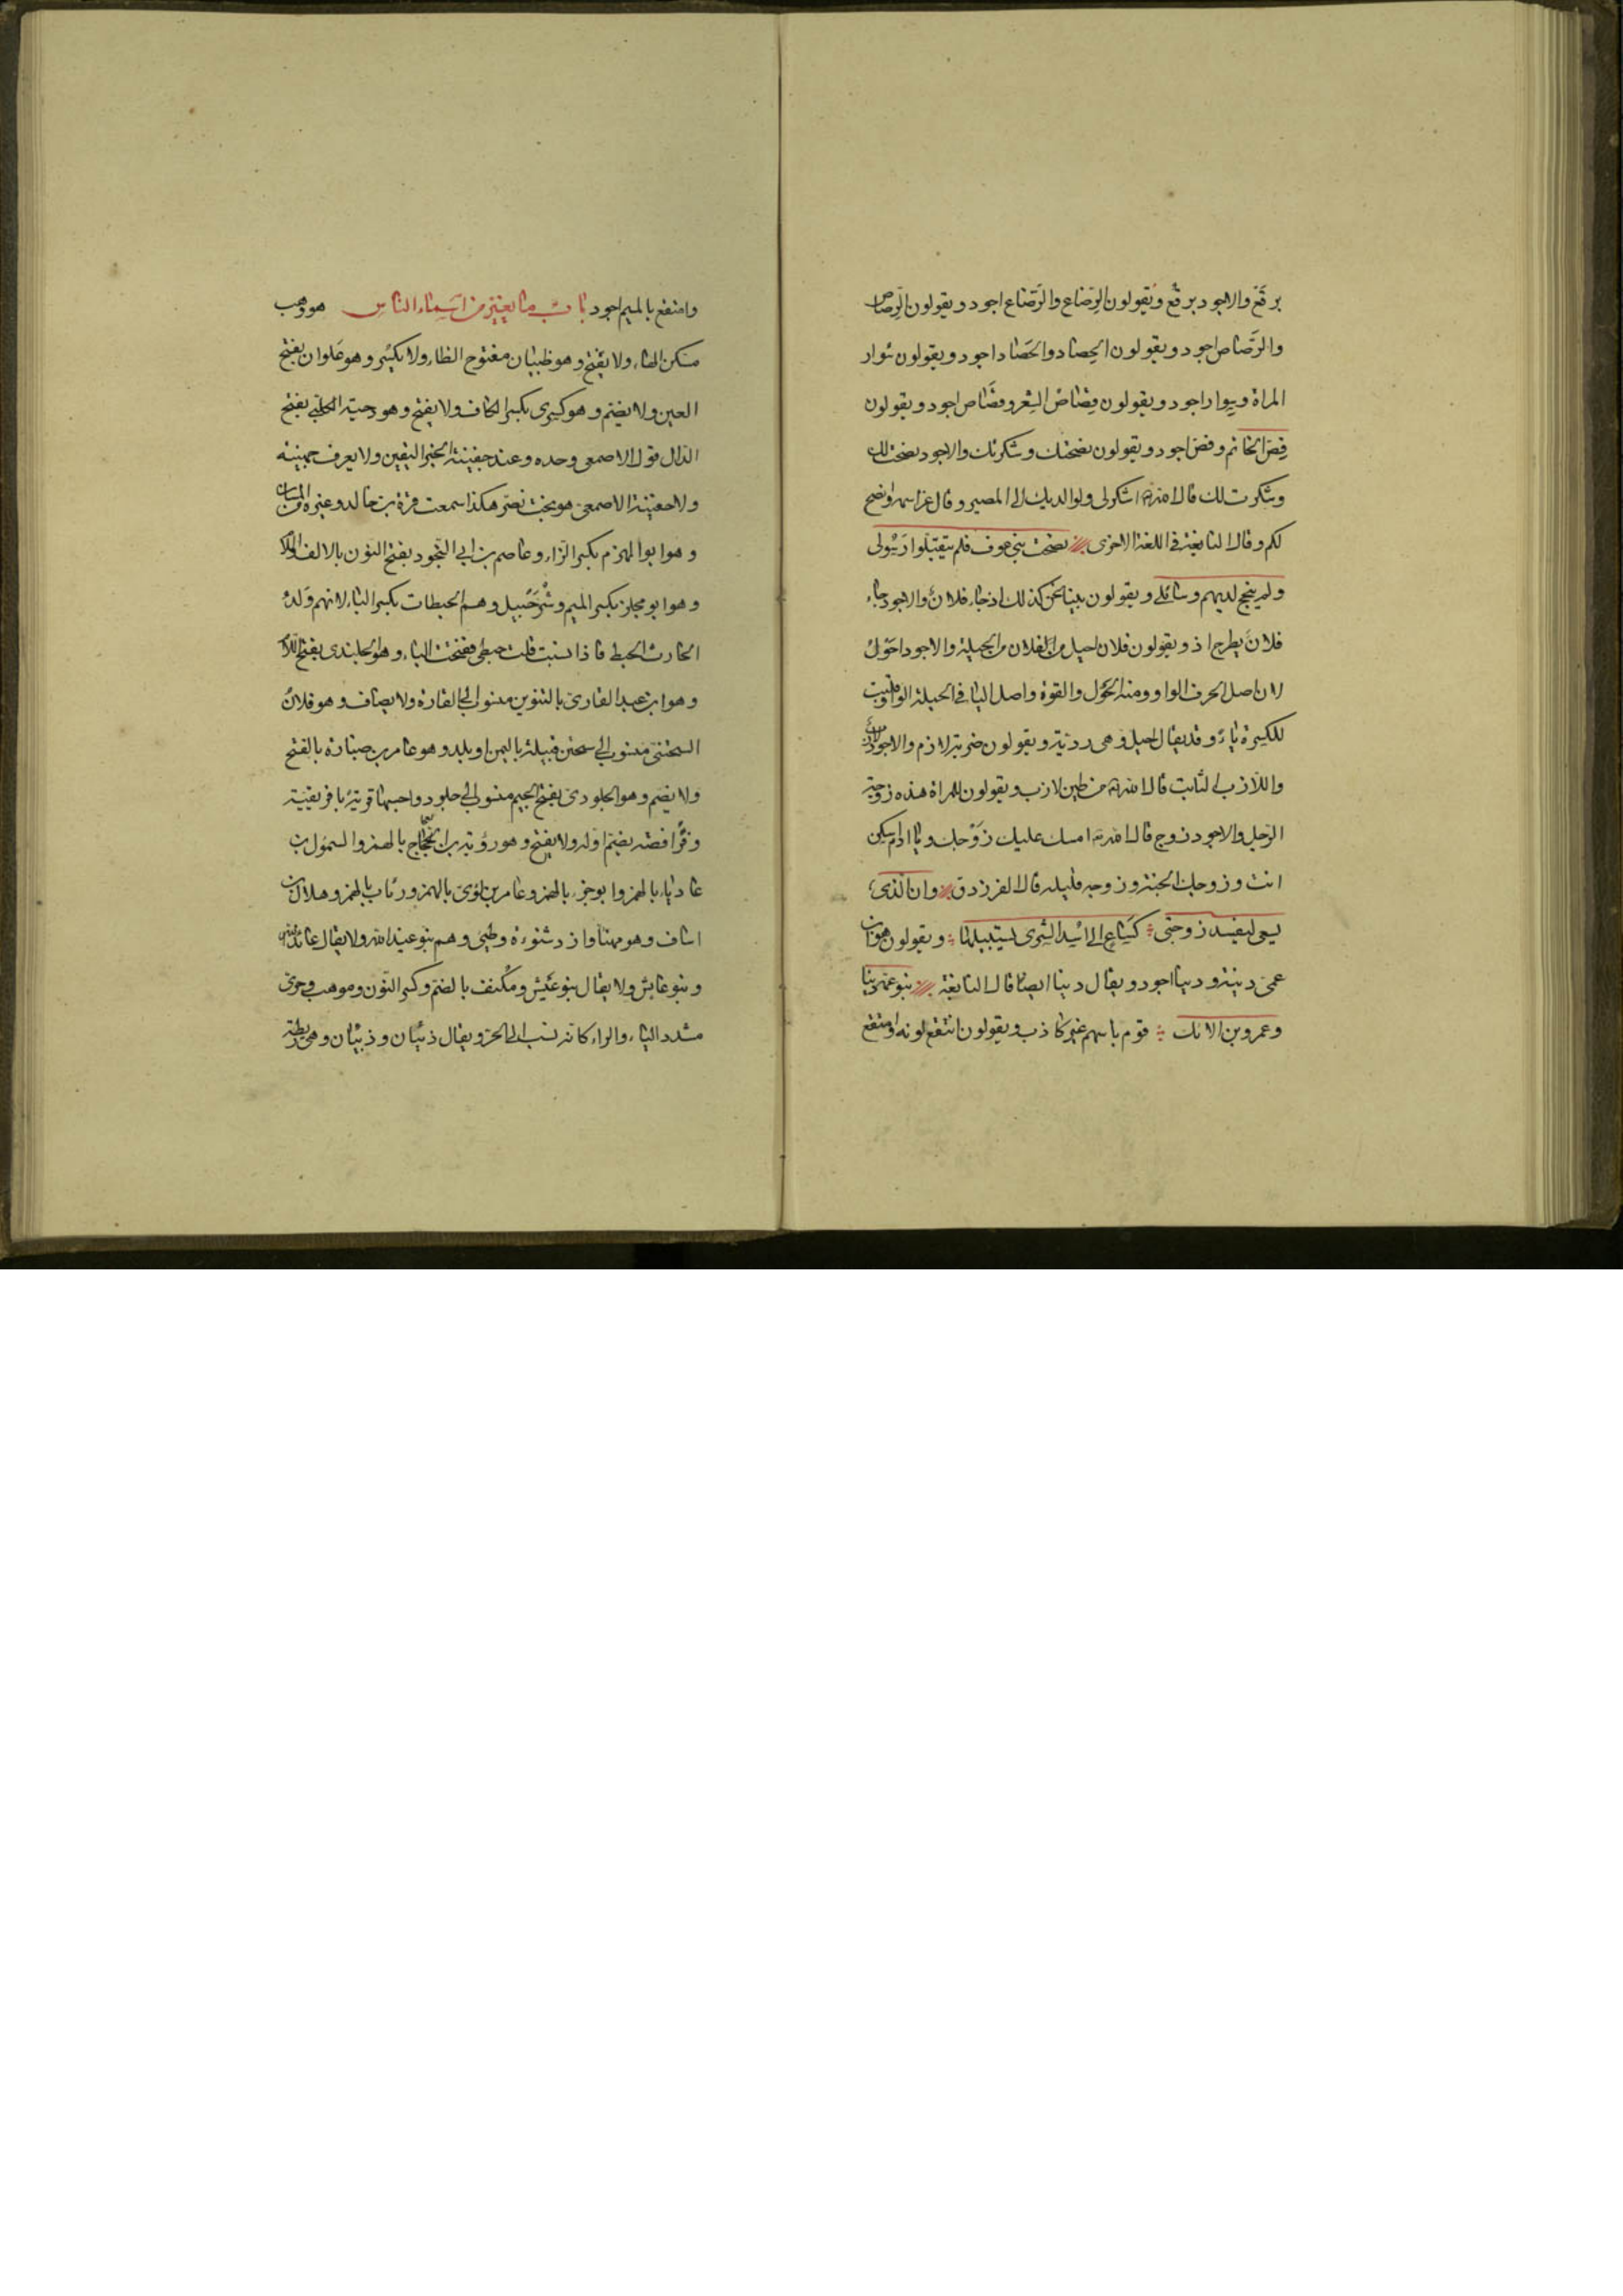 برقَع والاجود برقُع ويقولون الرِّضاع والرَّضاع اجود ويقولون الرِّصاص
والرَّصاص اجود ويقولون الحِصاد والحَصاد اجود ويقولون سُوار
المراة وسِوار اجود ويقولون قِصَاصُ الشعر وقُصَاص اجود ويقولون
فِصّ الخاتم وفَصّ اجود ويقولون نصحتك وشكرتك والاجود نصحت لك
وشكرت لك قال الله اشكر لى ولوالديك الى المصير وقال عز اسمه وانصح
لكم وقال النابغة فى اللغة الاخرى نصحت بنى عوف فلم يتقبّلوا رسولى
ولم ينجح لديهم وسائلى ويقولون بينا نحن كذلك اذ جاء فلانٌ والاجود جاء
فلان بطرح اذ ويقولون فلان احيل من فلان من الحيلة والاجود احول
لان اصل الحرف الواو ومنه الحول والقوة واصل اليا فى الحيلة الواو قلبت
للكسرة ياءً وقد يقال احيل وهى رديّة ويقولون ضربة لازم والاجود لازب
واللازب الثابت قال الله من طين لازب ويقولون للمراة هذه زوجة
الرجل والاجود زوج قال الله امسك عليك زَوْجك ويا ادم اسكن
انت وزوجك الجنة وزوجة قليله قال الفرزدق وان الذى
يسعى ليفسد زوجتى كَسَاعٍ الى اسد الشرى يستبيلها ويقولون هو ابن
عمى دِنيَة ودنيا اجود ويقال دنيا ايضا قال النابغة بنو عمه دنيا
وعمرو بن الانك قوم باسهم غير كاذب ويقولون انتقع لونه وامتقع
وامتقع بالميم اجود باب ما يغيّر من اسماء الناس هو وهب
مسكن الهاء ولا يفتح وهو ظبيان مفتوح الظاء ولا يكسر وهو عَلوان بفتح
العين ولا يضم وهو كسرى بكسر الكاف ولا يفتح وهو دحية الكلبى بفتح
الدال قول الاصمعى وحده وعند جفينة الخبر اليقين ولا يعرف جهينة
ولا حفينة الاصمعى هو بخت نصّر هكذا سمعت قرة بن خالد وغيره من المسان
وهو ابو المهزم بكسر الزاء وعاصم بن ابى النَّجود بفتح النون بالالف واللام
وهو ابو مجلز بكسر الميم وشُرَحْبِيل وهم الحبطات بكسر الباء لانهم وَلَدُ
الحارث الحبط فاذا نسبت قلت حبطى ففتحت الباء وهو الجلندى بفتح اللام
وهو ابن عبد القارىّ بالتنوين منسوب الى القارة ولا يضاف وهو فلان
السحتنى منسوب الى سحتن قبيلة باليمن او بلد وهو عامر بن ضبارة بالفتح
ولا يضم وهو الجلودى بفتح الجيم منسوب الى جلود واحسبها قرية بافريقية
وفُرافصة بضم اوله ولا يفتح وهو رؤبة بن العجّاج بالهمز والسموأل بن
عادياء بالهمز وابو جزء بالهمز وعامر بن لؤى بالهمز ورئاب بالهمز وهلال بن
اساف وهو مهنأ وازد شنوءة وطيئ وهم بنو عيذ الله ولا يقال عائذ الله
وبنو عايش ولا يقال بنو عيش ومُكنف بالضم وكسر النون وموهب وحرى
مشدد الياء والراء كانه نسب الى الحر ويقال ذُبيان وذِبيان وهى ريطة